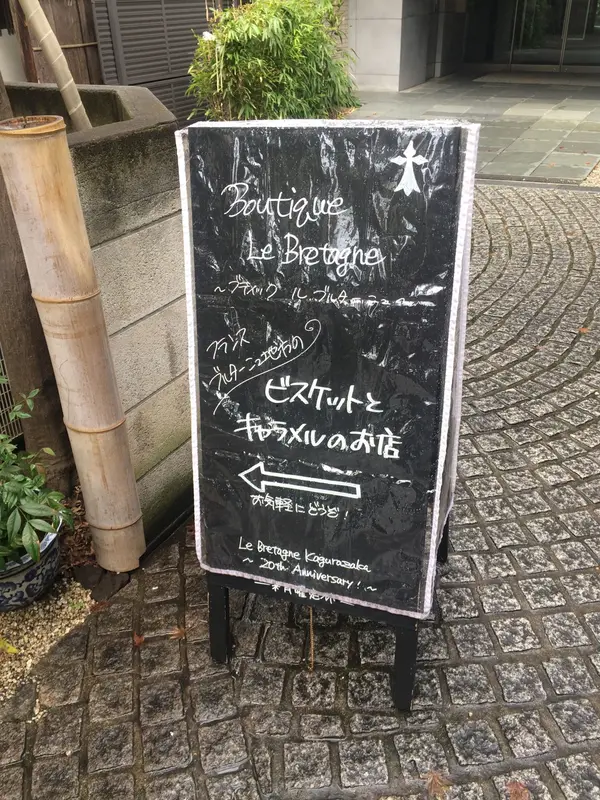 Boutique
Le Bretagne
～ブティック ル ブルターニュ～
フランス
ブルターニュ地方の
ビスケットと
キャラメルのお店
お気軽にどうぞ！
Le Bretagne Kagurazaka
～ 20th Anniversary! ～